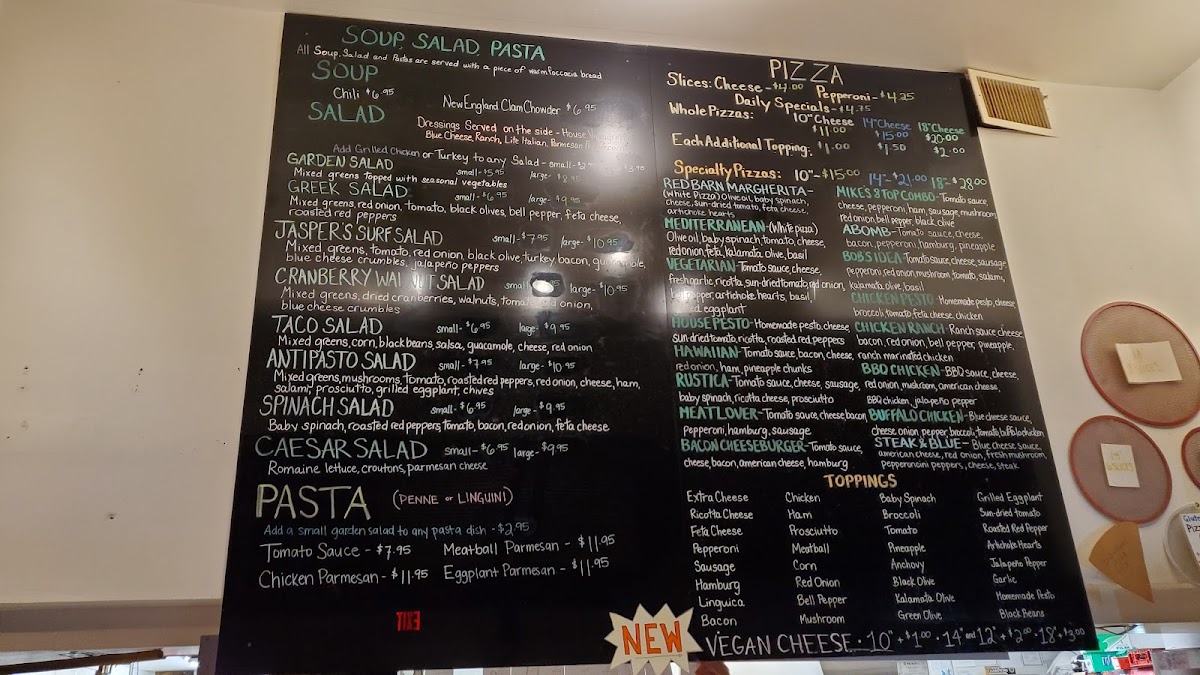 SOUP, SALAD, PASTA
All Soup, Salad and Pastas are served with a piece of warm foccacia bread
SOUP
Chili $6.95
New England Clam Chowder $6.95
SALAD
Dressings Served on the side - House
Blue Cheese, Ranch, Lite Italian, Parmesan
Add Grilled Chicken or Turkey to any Salad - small - $3.95
GARDEN SALAD small - $5.95 large - $8.95
Mixed greens topped with seasonal vegetables
GREEK SALAD small - $6.95 large - $9.95
Mixed greens, red onion, tomato, black olives, bell pepper, feta cheese,
roasted red peppers
JASPER'S SURF SALAD small - $7.95 large - $10.95
Mixed, greens, tomato, red onion, black olive, turkey bacon,
blue cheese crumbles, jalapeño peppers
CRANBERRY WALNUT SALAD small- large- $10.95
Mixed greens, dried cranberries, walnuts, tomato, red onion,
blue cheese crumbles
TACO SALAD small- $6.95 large- $9.95
Mixed greens, corn, black beans, salsa, guacamole, cheese, red onion
ANTIPASTO SALAD small- $7.95 large- $10.95
Mixed greens, mushrooms, tomato, roasted red peppers, red onion, cheese, ham,
salami, prosciutto, grilled eggplant, chives
SPINACH SALAD small- $6.95 large- $9.95
Baby spinach, roasted red peppers, tomato, bacon, red onion, feta cheese
CAESAR SALAD small- $6.95 large- $9.95
Romaine lettuce, croutons, parmesan cheese
PASTA (PENNE or LINGUINI)
Add a small garden salad to any pasta dish - $2.95
Tomato Sauce - $7.95 Meatball Parmesan - $11.95
Chicken Parmesan - $11.95 Eggplant Parmesan - $11.95
EXIT
PIZZA
Slices: Cheese - $4.00 Pepperoni - $4.25
Daily Specials - $4.75
Whole Pizzas: 10" Cheese 14" Cheese 18" Cheese
$11.00 $15.00 $20.00
Each Additional Topping: $1.00 $1.50 $2.00
Specialty Pizzas: 10" - $15.00 14" - $21.00 18" - $28.00
RED BARN MARGHERITA -
(White Pizza) Olive oil, baby spinach,
cheese, sun-dried tomato, feta cheese,
artichoke hearts
MEDITERRANEAN - (White pizza)
Olive oil, baby spinach, tomato, cheese,
red onion, feta, kalamata olive, basil
VEGETARIAN - Tomato sauce, cheese,
fresh garlic, ricotta, sun-dried tomato, red onion,
bell pepper, artichoke hearts, basil,
eggplant
HOUSE PESTO - Homemade pesto, cheese,
sun dried tomato, ricotta, roasted red peppers
HAWAIIAN - Tomato sauce, bacon, cheese,
red onion, ham, pineapple chunks
RUSTICA - Tomato sauce, cheese, sausage,
baby spinach, ricotta cheese, prosciutto
MEAT LOVER - Tomato sauce, cheese, bacon,
pepperoni, hamburg, sausage
BACON CHEESEBURGER - Tomato sauce,
cheese, bacon, american cheese, hamburg
MIKE'S 8 TOP COMBO - Tomato sauce,
cheese, pepperoni, ham, sausage, mushroom,
red onion, bell pepper, black olive
ABOMB - Tomato sauce, cheese,
bacon, pepperoni, hamburg, pineapple
BOB'S IDEA - Tomato sauce, cheese, sausage
pepperoni, red onion, mushroom, tomato, salami,
kalamata olive, basil
CHICKEN PESTO - Homemade pesto, cheese,
broccoli, tomato, feta cheese, chicken
CHICKEN RANCH - Ranch sauce, cheese,
bacon, red onion, bell pepper, pineapple,
ranch marinated chicken
BBQ CHICKEN - BBQ sauce, cheese,
red onion, mushroom, american cheese,
BBQ chicken, jalapeño pepper
BUFFALO CHICKEN - Blue cheese sauce,
cheese, onion, pepper, broccoli, tomato, buffalo chicken
STEAK & BLUE - Blue cheese sauce,
american cheese, red onion, fresh mushroom,
pepperoncini peppers, cheese, steak
TOPPINGS
Extra Cheese Chicken Baby Spinach Grilled Eggplant
Ricotta Cheese Ham Broccoli Sun-dried tomato
Feta Cheese Prosciutto Tomato Roasted Red Pepper
Pepperoni Meatball Pineapple Artichoke Hearts
Sausage Corn Anchovy Jalapeño Pepper
Hamburg Red Onion Black Olive Garlic
Linguica Bell Pepper Kalamata Olive Homemade Pesto
Bacon Mushroom Green Olive Black Beans
NEW VEGAN CHEESE - 10" + $1.00 - 14" and 12" + $2.00 - 18" + $3.00